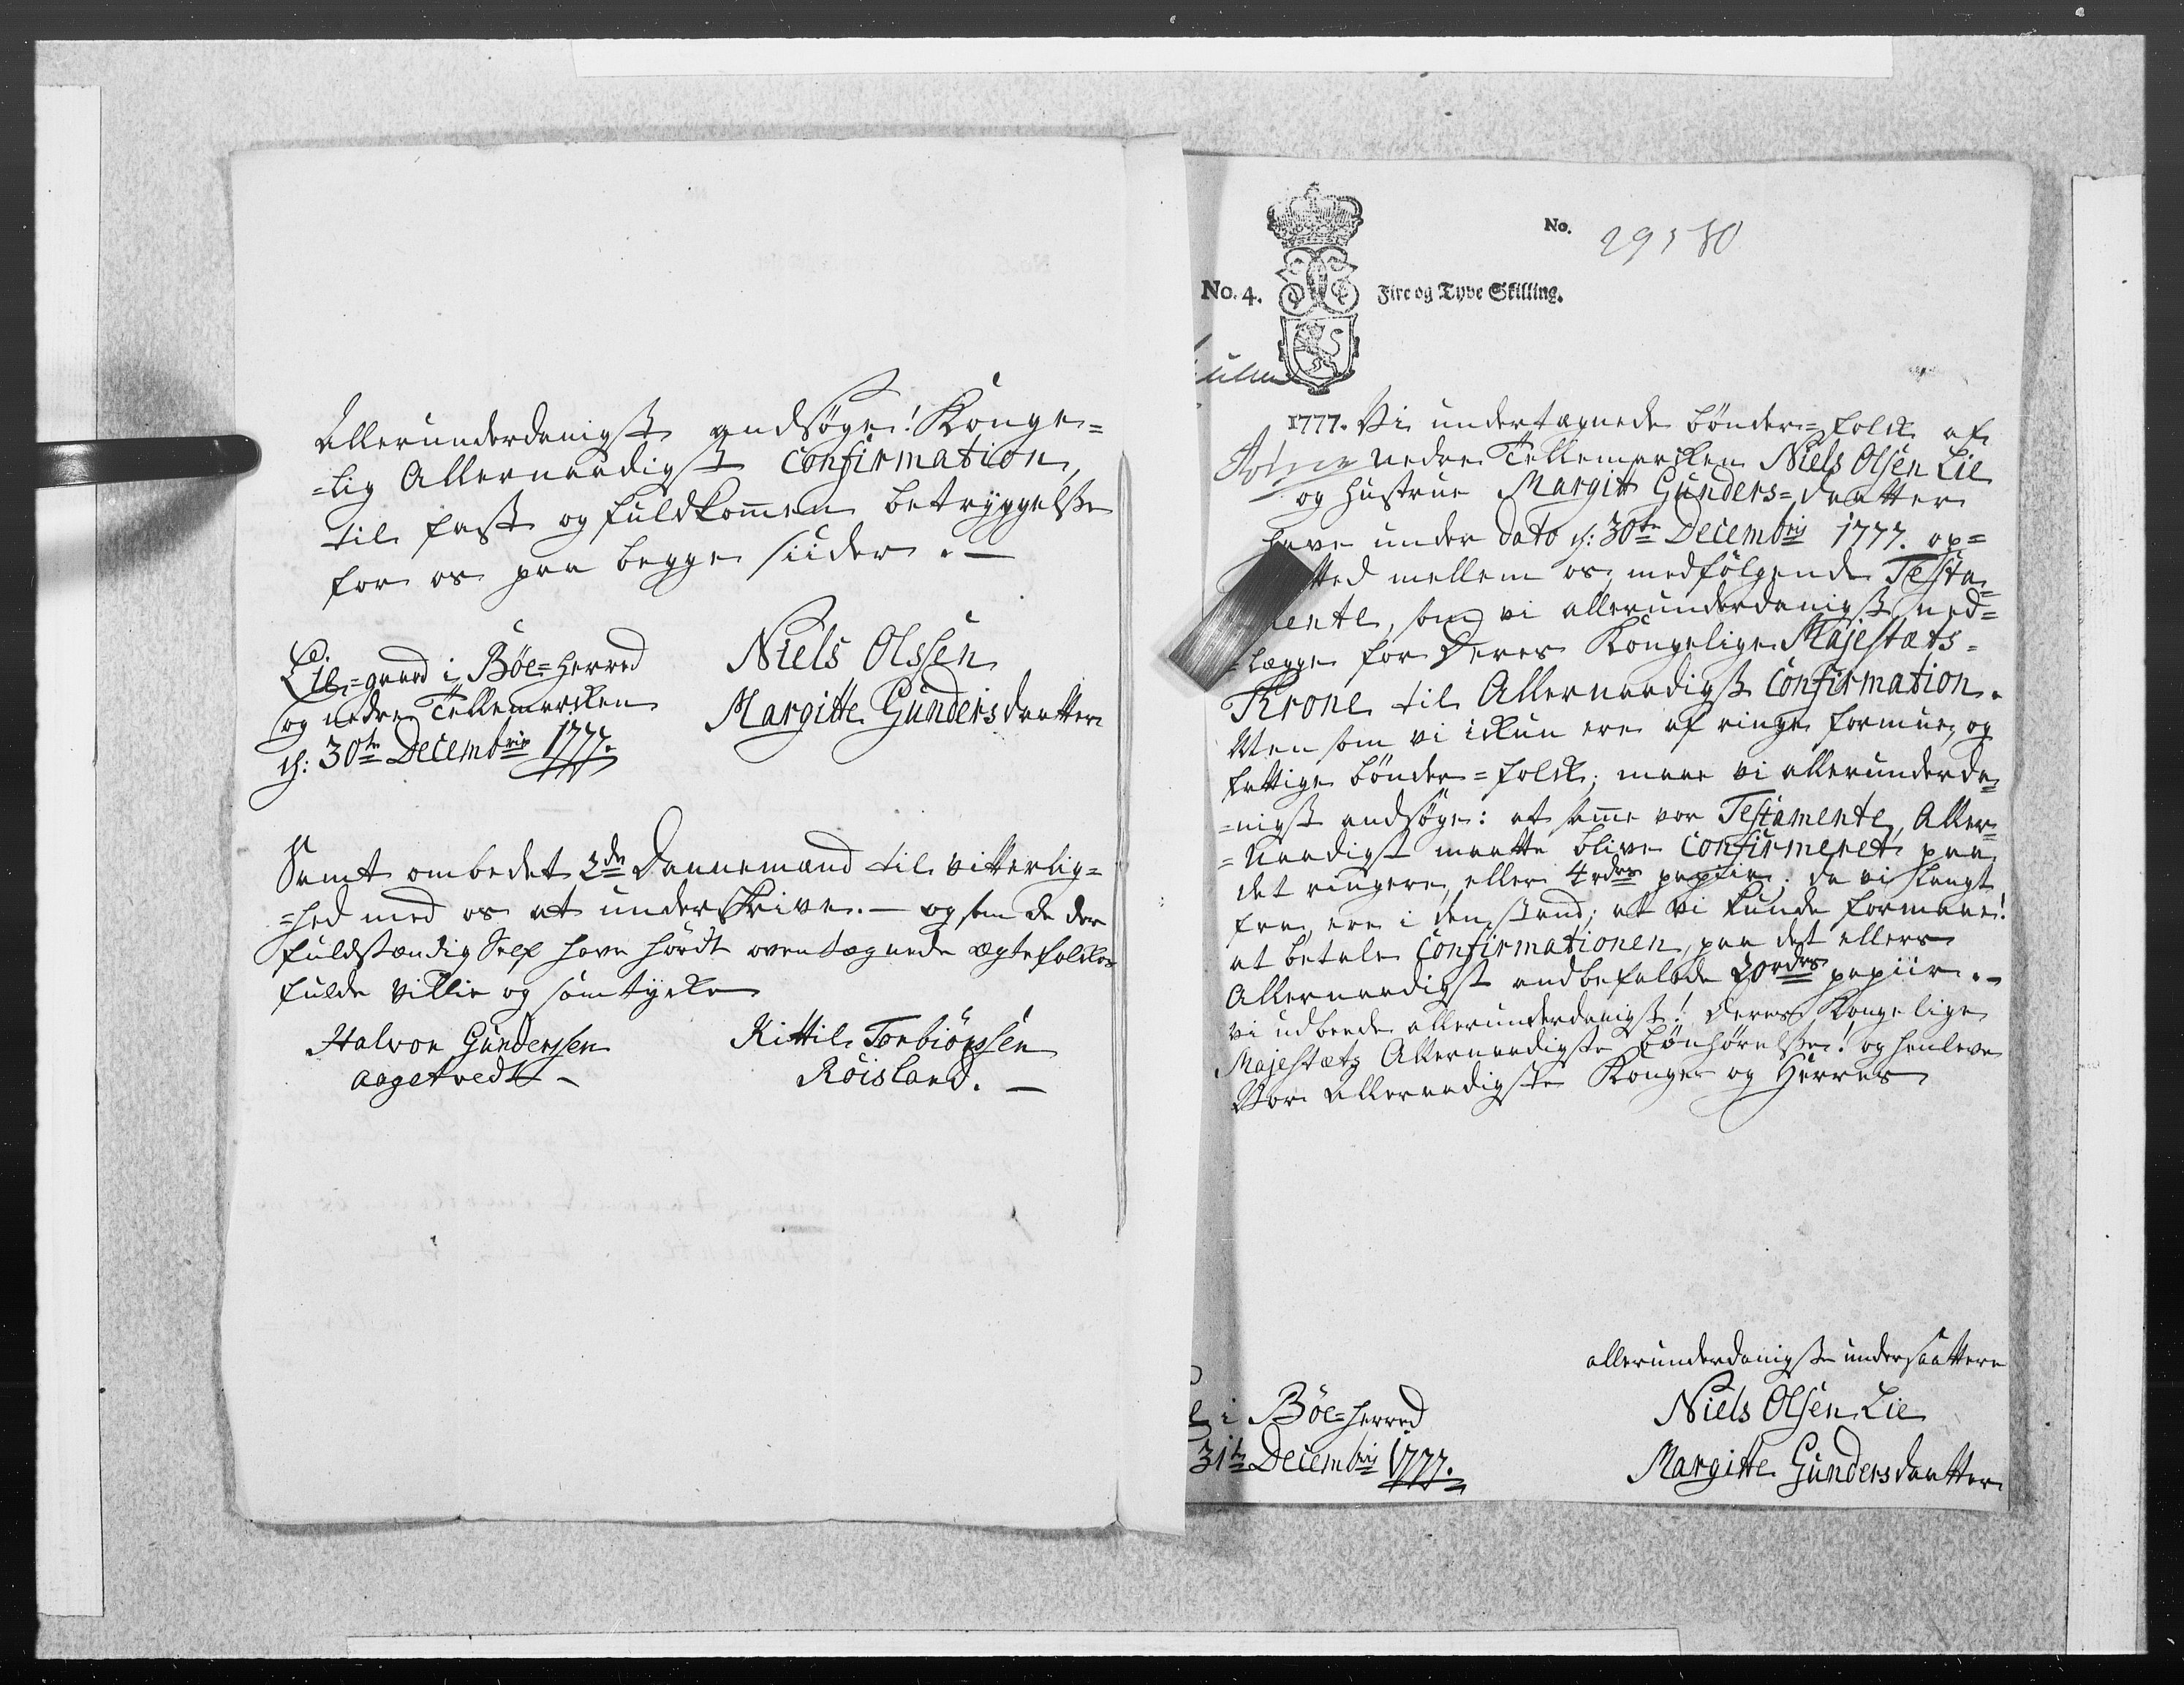 Allerunderdanigst andsöge! Konge=
=lig Allernaadigst Confirmation,
til fast og fuldkommen betryggelse
for os paa begge siider. —
Lie=gaard i Böe=herred
og nedre Tellemarken
d: 30te Decembris 1777.
Niels Olssen
Margitte Gundersdaatter
Samt ombedet 2de Dannemænd til vitterlig=
=hed med os at underskrive. — og som de der
fuldstændig Self have hördt oventegnede ægtefolkes
fulde villie og samtycke
Halvor Gundersen
aagetvedt —
Kittil Torbiörssen
Röisland. —
No. 29580
No. 4. Fire og Tyve Skilling.
1777. Vi undertegnede bönder=folk af
nedre Tellemarken Niels Olsen Lie
og hustrue Margit Gunders=daatter
have under dato d: 30te Decembris 1777. op=
mellem os, medfölgende Testa=
mente, som vi allerunderdanigst ned=
=lægge for Deres Kongelige Majestæts=
Krone til Allernaadigst Confirmation.
Men som vi ickun ere af ringe formue, og
fattige bönder=folk; maae vi allerunderda=
=nigst andsöge: at samme vor Testamente, Aller=
=naadigst maatte blive Confirmeret paa
det ringere, eller 4rdrs papiir; da vi langt
fra, ere i den stand; at vi kunde formaae!
at betale Confirmationen, paa det ellers
Allernaadigst andbefalede 20rdrs papiir. —
Vi udbeede allerunderdanigst! Deres Kongelige
Majestæts Allernaadigste bönhörelse! og henleve
Vor Allernaadigste Konges og Herres
allerunderdanigste undersaattere
i Böe=herred
31te Decembris 1777.
Niels Olsen Lie
Margitte Gundersdaatter